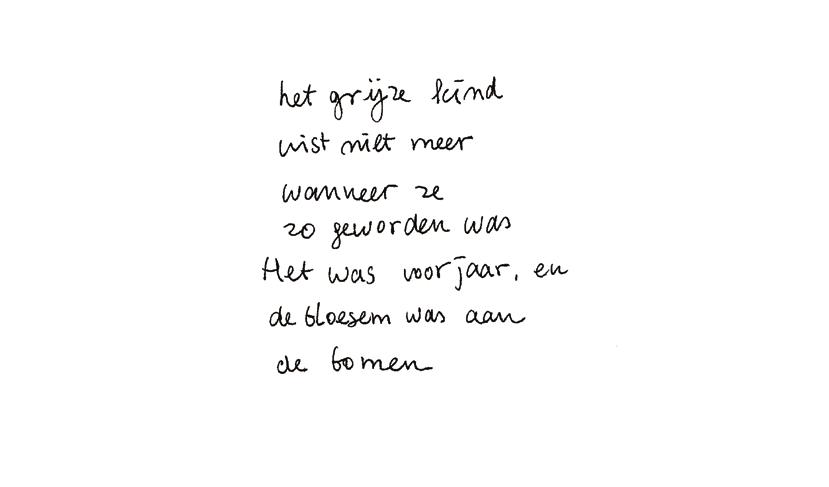 het grijze kind
wist niet meer
wanneer ze
zo geworden was
Het was voorjaar, en
de bloesem was aan
de bomen